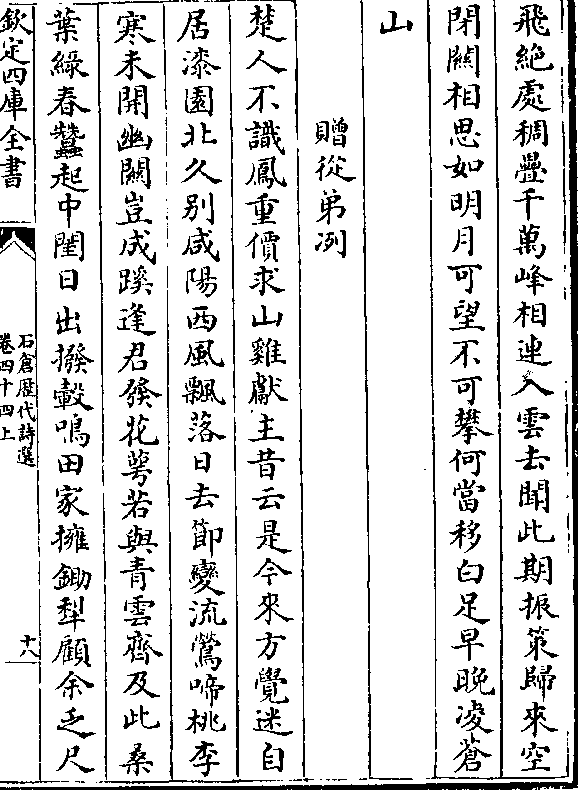 飛絶處稠疊千萬峰相連入雲去聞此期振策歸來空
閉關相思如明月可望不可攀何當移白足早晚凌蒼
山
贈從弟冽
楚人不識鳳重價求山雞獻主昔云是今來方覺迷自
居漆園北久别咸陽西風飄落日去節變流鶯啼桃李
寒未開幽關豈成蹊逢君發花萼若與青雲齊及此桑
葉緑春蠶起中閨日出撥榖鳴田家擁鋤犁顧余乏尺
欽定四庫全書
石倉歴代詩選
卷四十四上
十八